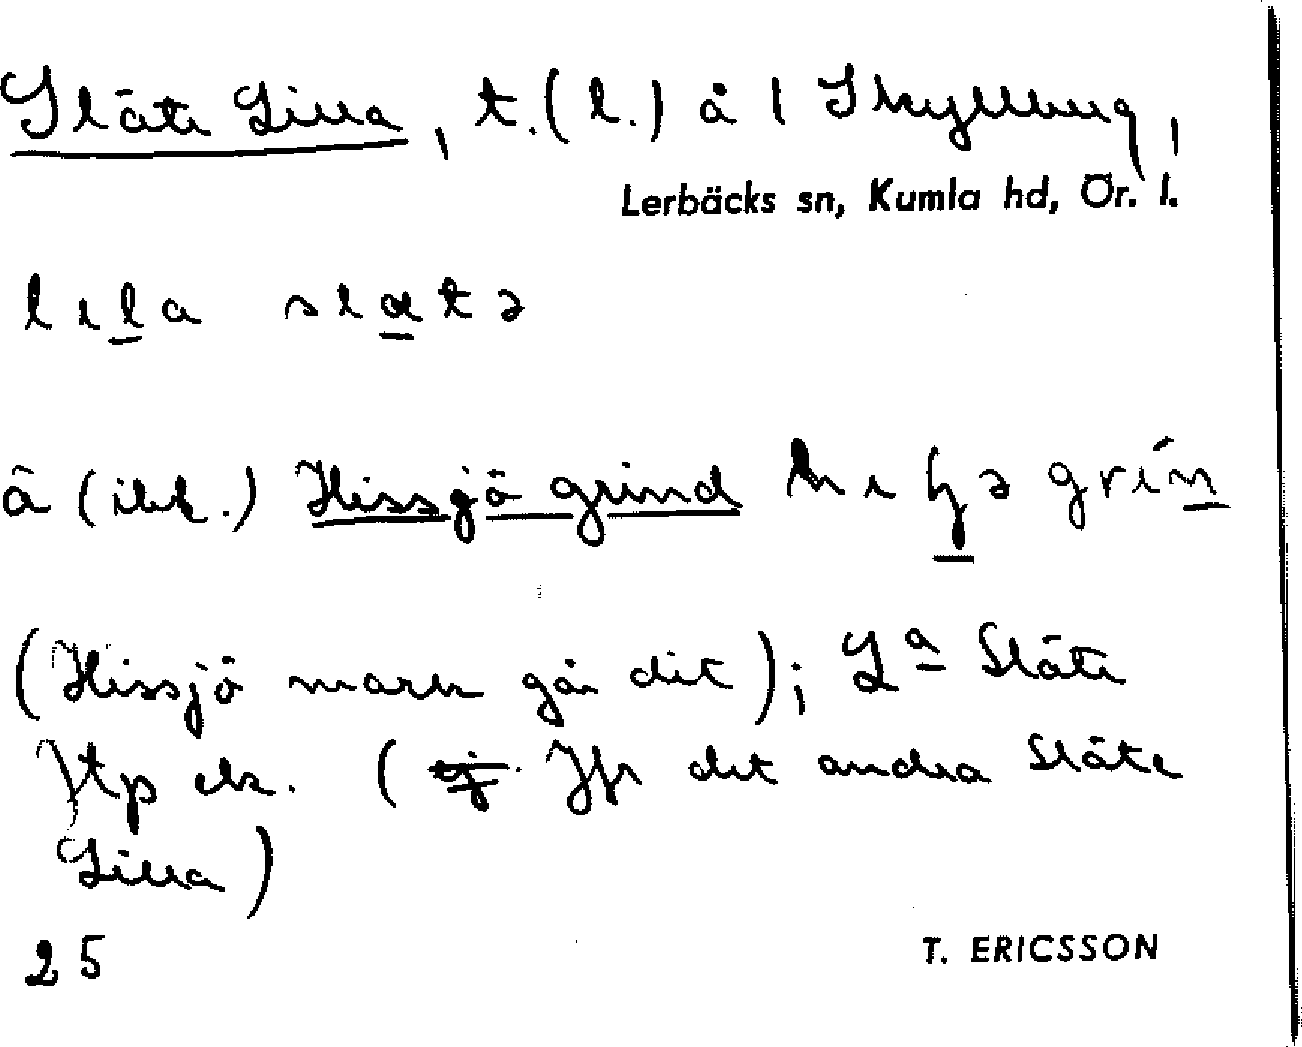 Släte Lilla, t. (l.) å 1 Skyllberg,
Lerbäcks sn, Kumla hd, Ör. l.
lıla slætə
ä (ibl.) Hissjö grind
(Hissjö mark går dit); La Släte
Jtp ek. ( Jfr det andra Släte
Lilla)
25 T. ERICSSON